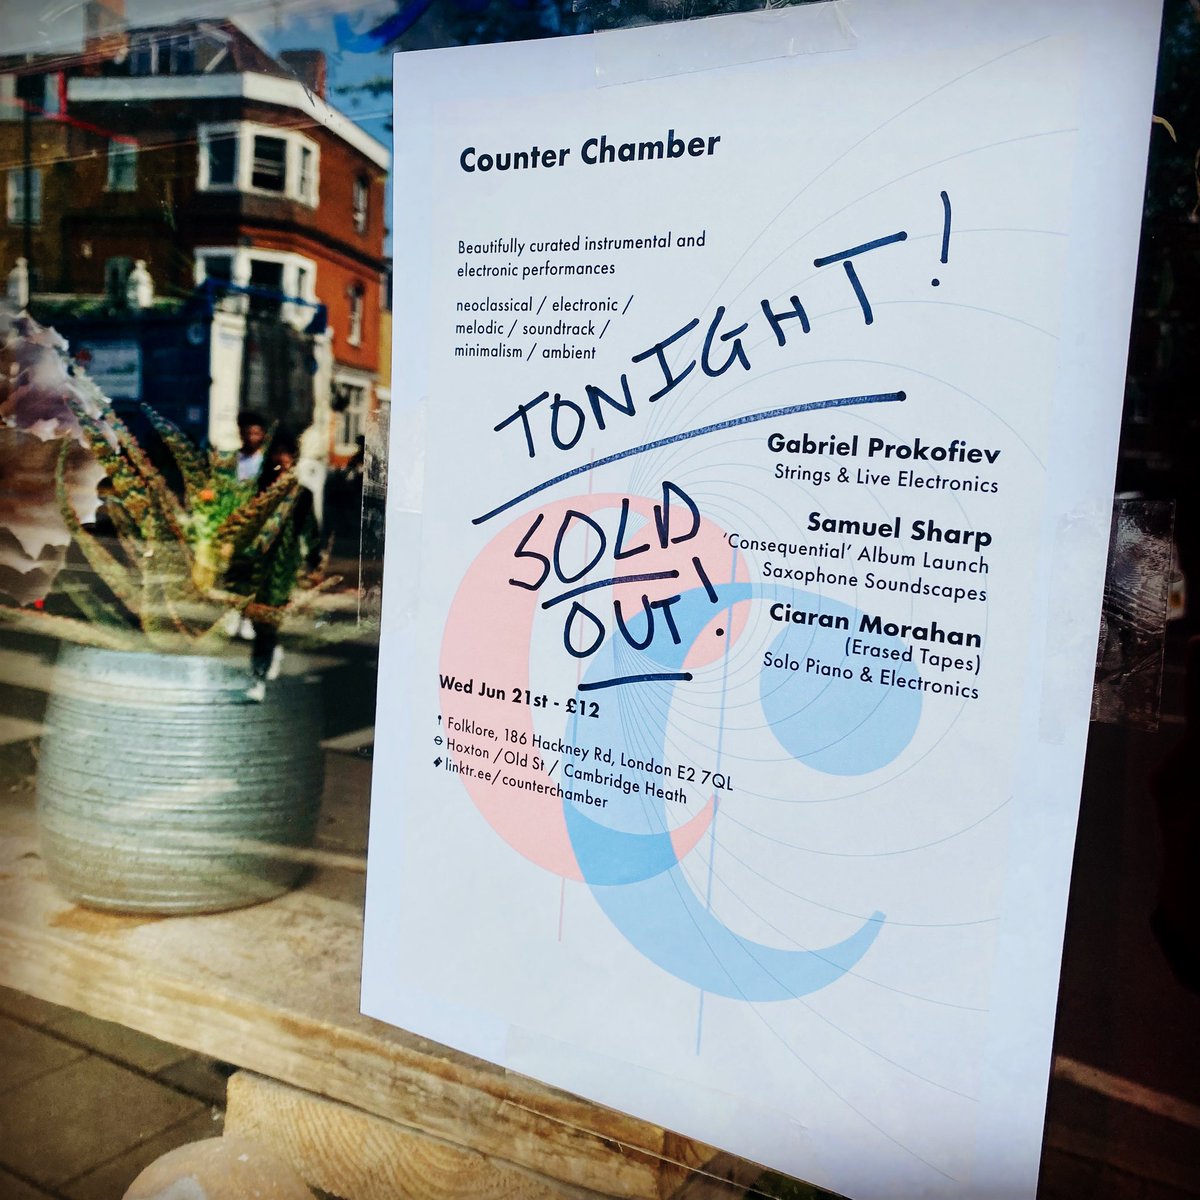 Counter Chamber
Beautifully curated instrumental and
electronic performances
neoclassical / electronic /
melodic / soundtrack /
minimalism / ambient
TONIGHT!
Gabriel Prokofiev
Strings & Live Electronics
SOLD
OUT!
Samuel Sharp
'Consequential' Album Launch
Saxophone Soundscapes
Ciaran Morahan
(Erased Tapes)
Solo Piano & Electronics
Wed Jun 21st - £12
Folklore, 186 Hackney Rd, London E2 7QL
Hoxton /Old St / Cambridge Heath
linktr.ee/counterchamber